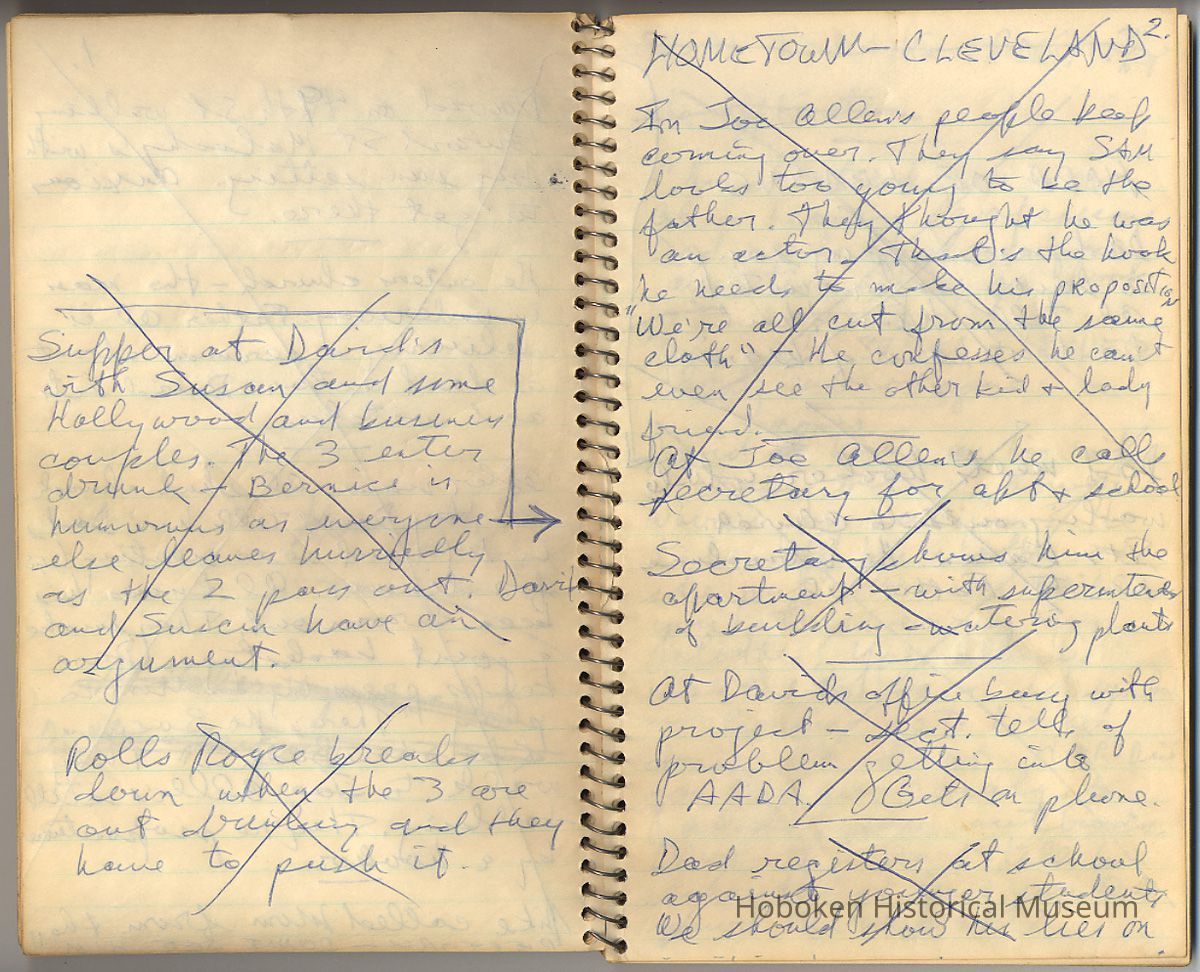 Supper at David's
with Susan and some
Hollywood and business
couples. The 3 enter
drunk - Bernice is
humorous as everyone
else leaves hurriedly
as the 2 pass out. David
and Susan have an
argument.
Rolls Royce breaks
down when the 3 are
out drinking and they
have to push it.
2.
HOMETOWN - CLEVELAND
In Joe Allen's people keep
coming over. They say SAM
looks too young to be the
father. They thought he was
an actor. That's the hook
he needs to make his PROPOSITION
"We're all cut from the same
cloth" - He confesses he can't
even see the other kid & lady
friend.
At Joe Allen's he calls
secretary for apt & school
Secretary shows him the
apartment - with superintendent
of building - watering plants
At Davids office busy with
project - sect. tells of
problem getting into
AADA. Gets on phone.
Dad registers at school
against younger students
We should show his lies on
Hoboken Historical Museum